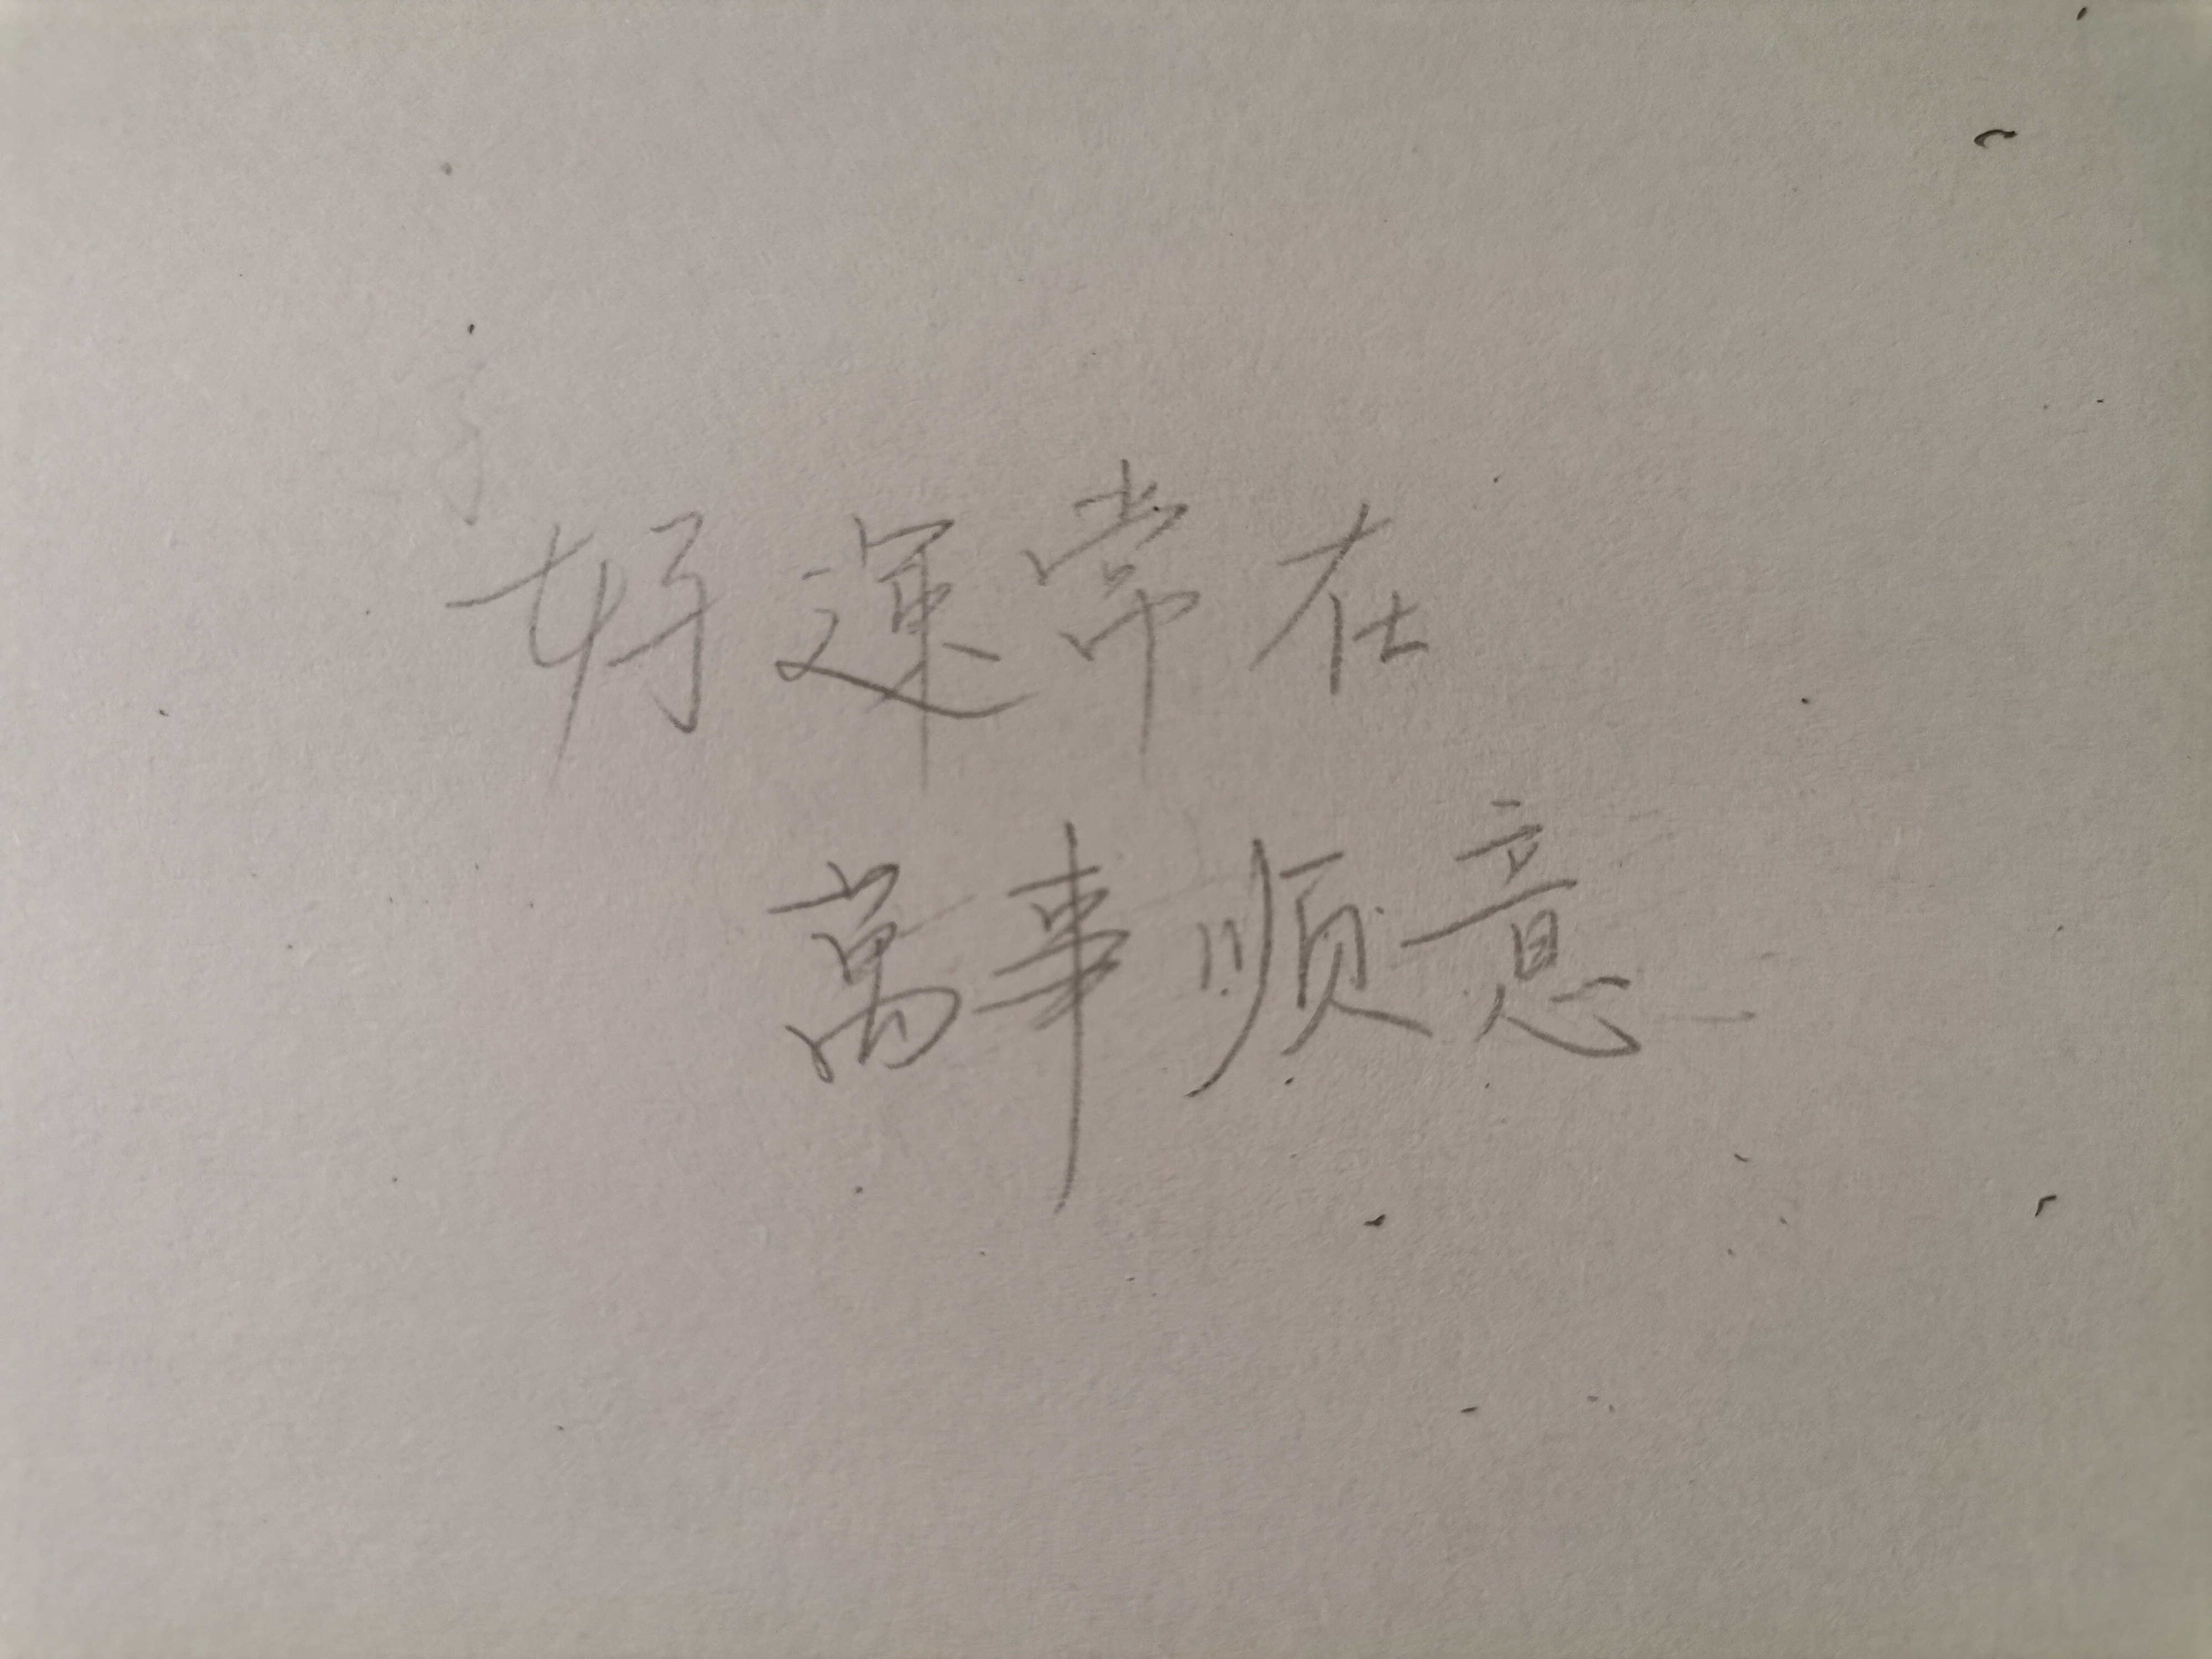 好運常在
萬事顺意